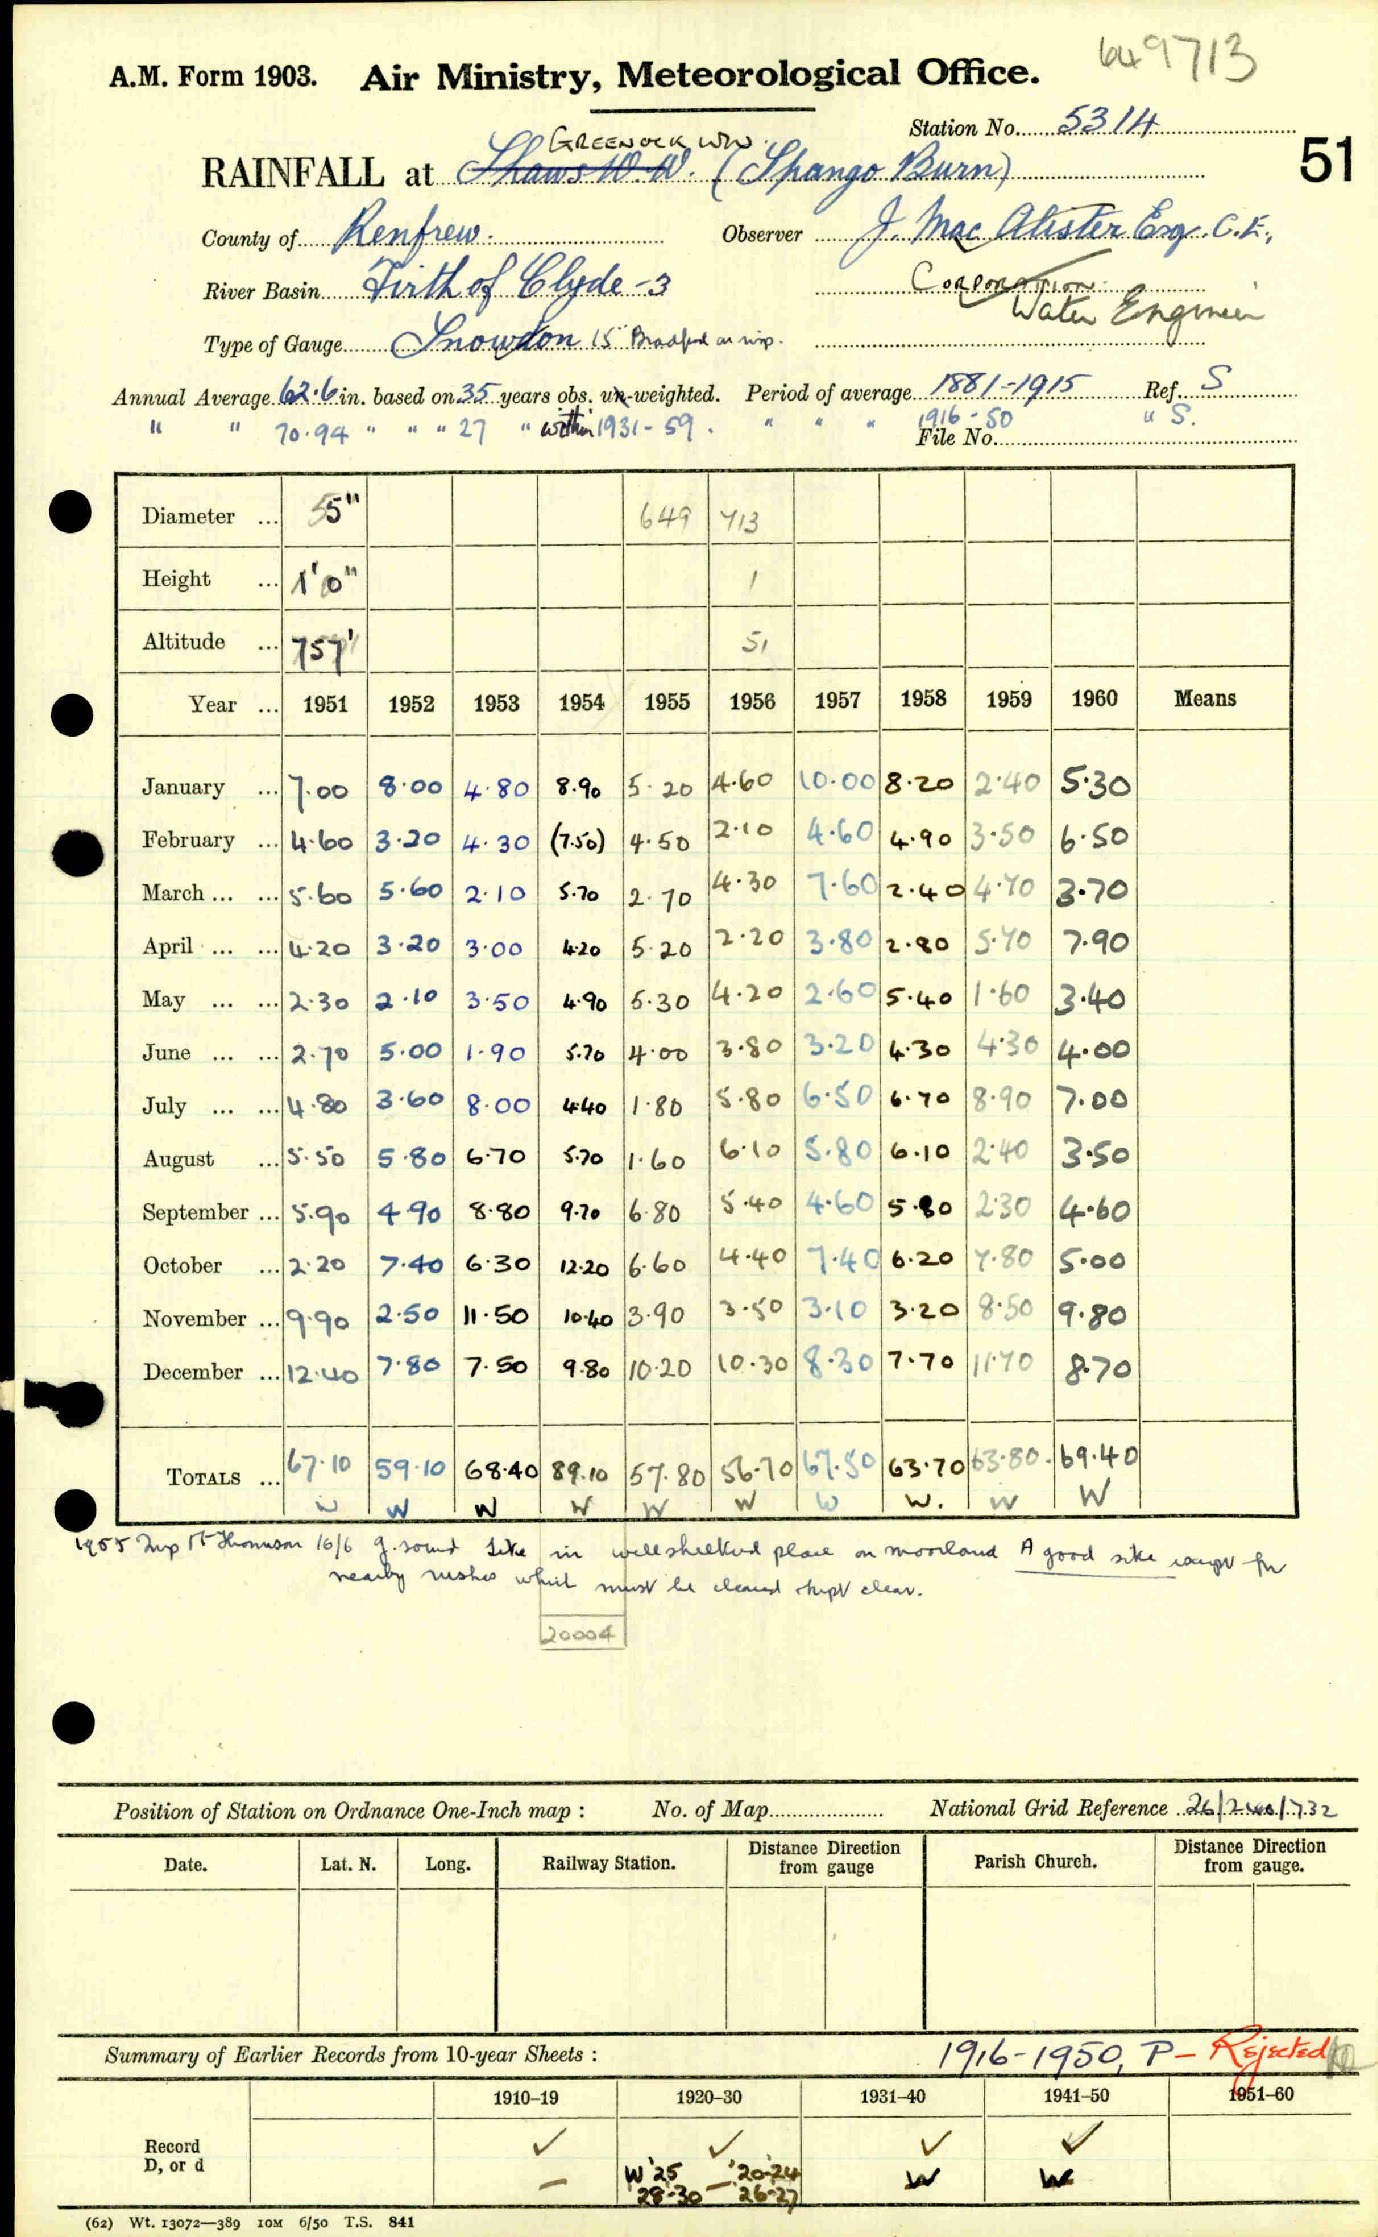 649713
A.M. Form 1903. Air Ministry, Meteorological Office.
Station No. 5314
51
GREENOCK WW.
RAINFALL at Shaws W.W. (Spango Burn)
County of Renfrew. Observer J. MacAlister Esq. C.E.,
River Basin Firth of Clyde -3 CORPORATION
Water Engineer
Type of Gauge Snowdon 15" Bradford on insp.
Annual Average 62.6 in. based on 35 years obs. un-weighted. Period of average 1881-1915 Ref. S
" " 70.94 " " " 27 " within 1931-59. " " " 1916-50 " S.
File No.
Diameter ... 5" 649 713
Height ... 1'0" 1
Altitude ... 757' 51
Year ... 1951 1952 1953 1954 1955 1956 1957 1958 1959 1960 Means
January ... 7.00 8.00 4.80 8.90 5.20 4.60 10.00 8.20 2.40 5.30
February ... 4.60 3.20 4.30 (7.50) 4.50 2.10 4.60 4.90 3.50 6.50
March ... ... 5.60 5.60 2.10 5.70 2.70 4.30 7.60 2.40 4.70 3.70
April ... ... 4.20 3.20 3.00 4.20 5.20 2.20 3.80 2.80 5.70 7.90
May ... ... 2.30 2.10 3.50 4.90 5.30 4.20 2.60 5.40 1.60 3.40
June ... ... 2.70 5.00 1.90 5.70 4.00 3.80 3.20 4.30 4.30 4.00
July ... ... 4.80 3.60 8.00 4.40 1.80 5.80 6.50 6.70 8.90 7.00
August ... 5.50 5.80 6.70 5.70 1.60 6.10 5.80 6.10 2.40 3.50
September ... 5.90 4.90 8.80 9.70 6.80 5.40 4.60 5.80 2.30 4.60
October ... 2.20 7.40 6.30 12.20 6.60 4.40 7.40 6.20 7.80 5.00
November ... 9.90 2.50 11.50 10.40 3.90 3.50 3.10 3.20 8.50 9.80
December ... 12.40 7.80 7.50 9.80 10.20 10.30 8.30 7.70 11.70 8.70
TOTALS ... 67.10 59.10 68.40 89.10 57.80 56.70 67.50 63.70 63.80 69.40
W W W W W W W W. W W
1955 Insp Thomson 16/6 g. sound Site in well sheltered place on moorland A good site except for
nearby rushes which must be cleared & kept clear.
20004
Position of Station on Ordnance One-Inch map : No. of Map National Grid Reference 26/240/732
Date. Lat. N. Long. Railway Station. Distance Direction from gauge Parish Church. Distance Direction from gauge.
Summary of Earlier Records from 10-year Sheets : 1916-1950, P - Rejected
1910–19 1920–30 1931–40 1941–50 1951–60
Record ✓ ✓ ✓ ✓
D, or d – W '25 '20-24 W W
'28-30 – 26-27
(62) Wt. 13072—389 10M 6/50 T.S. 841